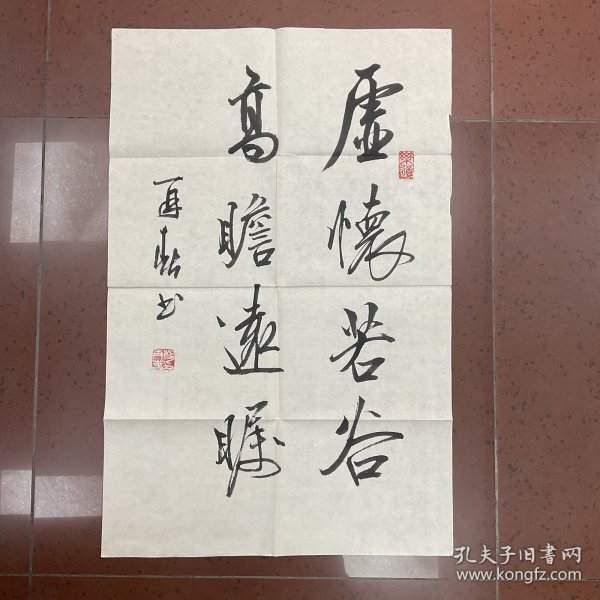 虚懐若谷
高瞻遠瞩
书
孔夫子旧書网
www.kongfz.com